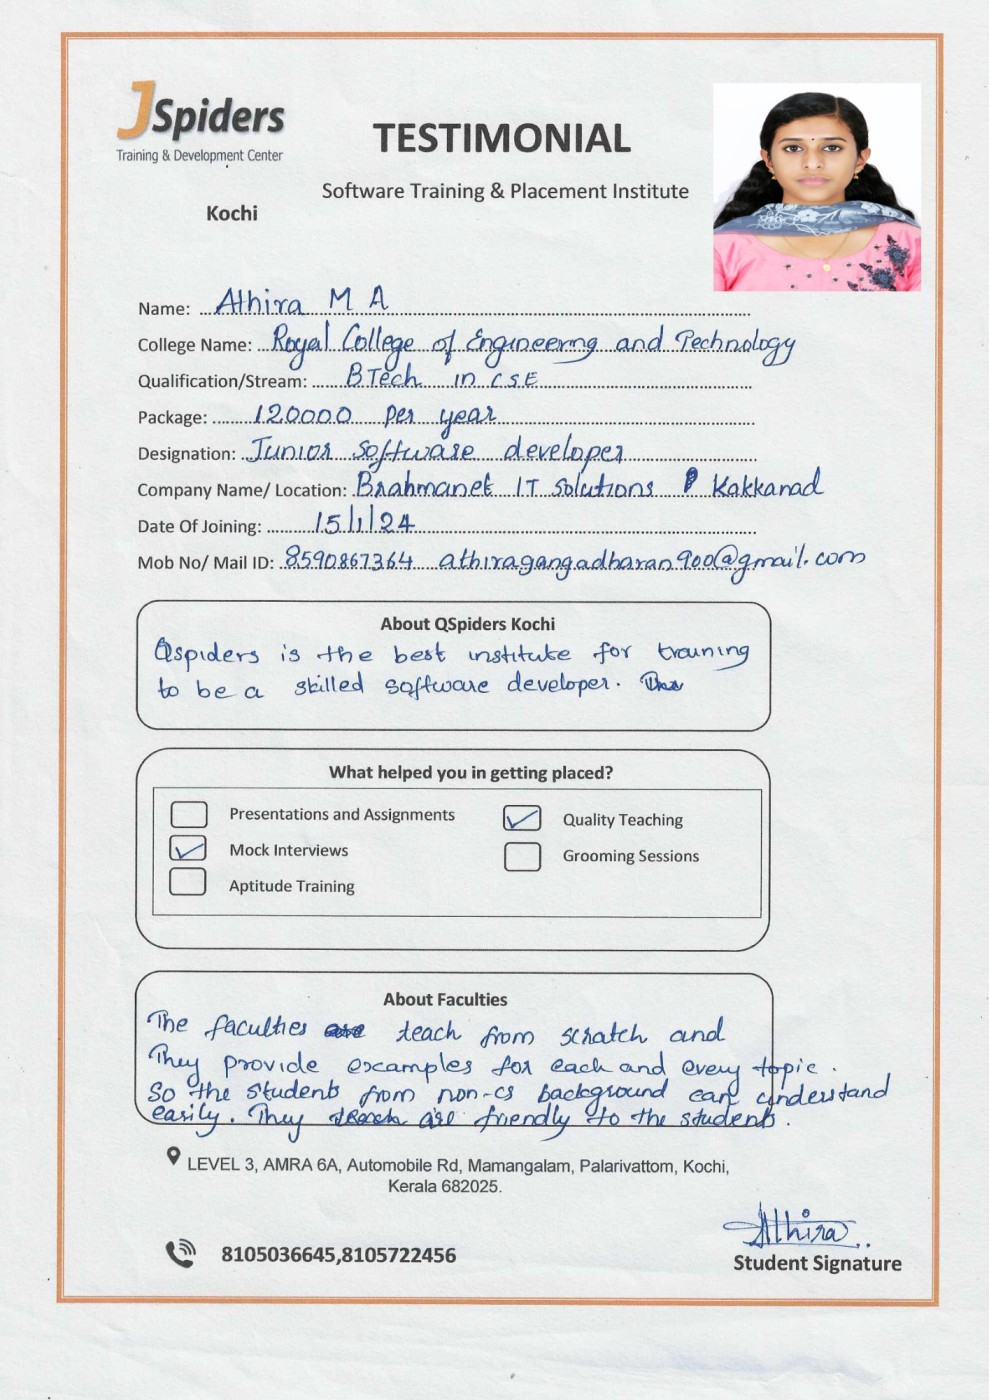 JSpiders
Training & Development Center
Kochi
TESTIMONIAL
Software Training & Placement Institute
Name: Athira M A
College Name: Royal College of Engineering and Technology
Qualification/Stream: BTech in CSE
Package: 120000 per year
Designation: Junior software developer
Company Name/ Location: Brahmanet IT Solutions Kakkanad
Date Of Joining: 15/1/24
Mob No/ Mail ID: 8590867364 athiragangadharan900@gmail.com
About QSpiders Kochi
Qspiders is the best institute for training
to be a skilled software developer.
What helped you in getting placed?
Presentations and Assignments
Quality Teaching
Mock Interviews
Grooming Sessions
Aptitude Training
About Faculties
The faculties teach from scratch and
They provide examples for each and every topic.
So the students from non-cs background can understand
easily. They are friendly to the students.
LEVEL 3, AMRA 6A, Automobile Rd, Mamangalam, Palarivattom, Kochi,
Kerala 682025.
Athira
8105036645,8105722456
Student Signature